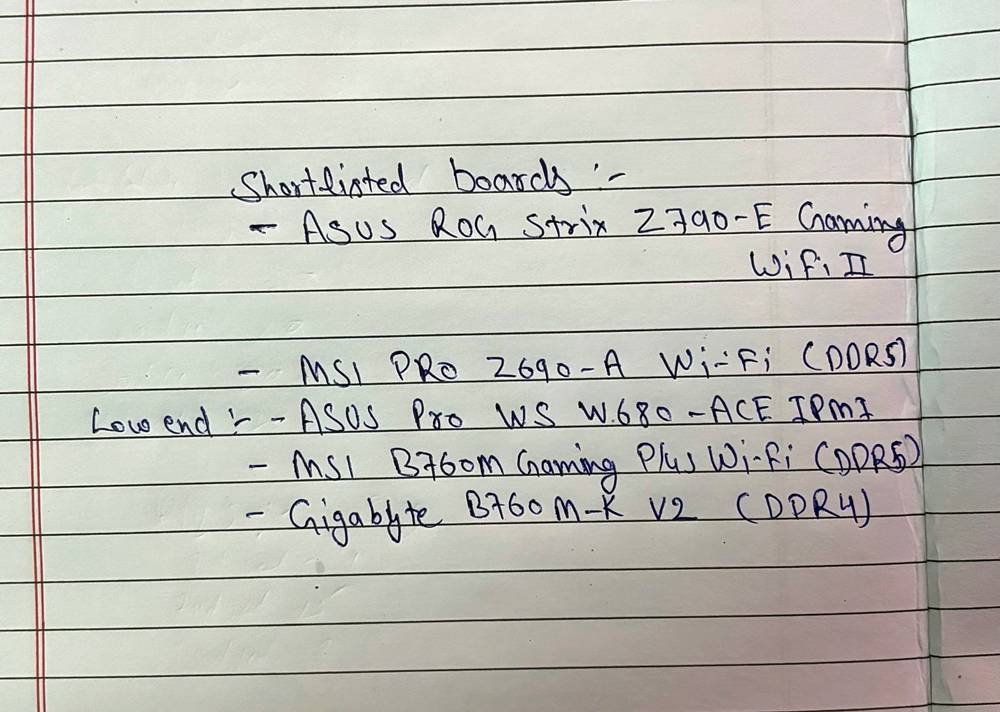 Shortlisted boards :-
- ASUS ROG Strix Z790-E Gaming
WiFi II
- MSI PRO Z690-A Wi-Fi (DDR5)
Low end :- - ASUS Pro WS W680-ACE IPMI
- MSI B760M Gaming Plus Wi-Fi (DDR5)
- Gigabyte B760M-K V2 (DDR4)